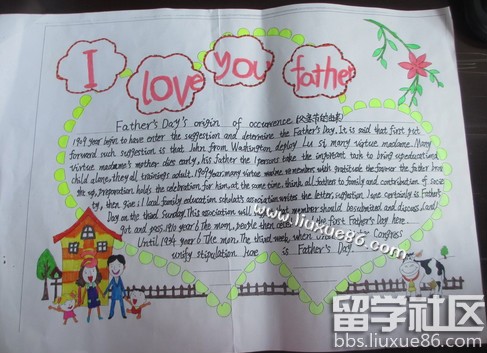 I love you father
Father's Day's origin of occurrence (父亲节的由来)
1909 year begin to have enter the suggestion and determine the Father's Day. It is said that first put
forward such suggestion is that John from Washington deploy Lu si many virtue madame. Many
virtue madame's mother dies early, his father the 1 persons take the important task to bring up educational
child alone, they all training adult. 1909 year many virtue madame remember with gratitude the favour the father
the up, preparation holds the celebration for him, at the same time, think all father to family and contribution of socie
ty, then give is local family education scholar's association writes the letter, suggestion June certainly is Father's
Day on the third Sunday. This association will member should be submitted and discuss, and
got and pass. 1910 year 6 The mon, people then the first Father's Day here.
Until 1934 year 6 The mon. The third week, when Congress
unify stipulation June is Father's Day.
www.liuxue86.com
留学社区
bbs.liuxue86.com